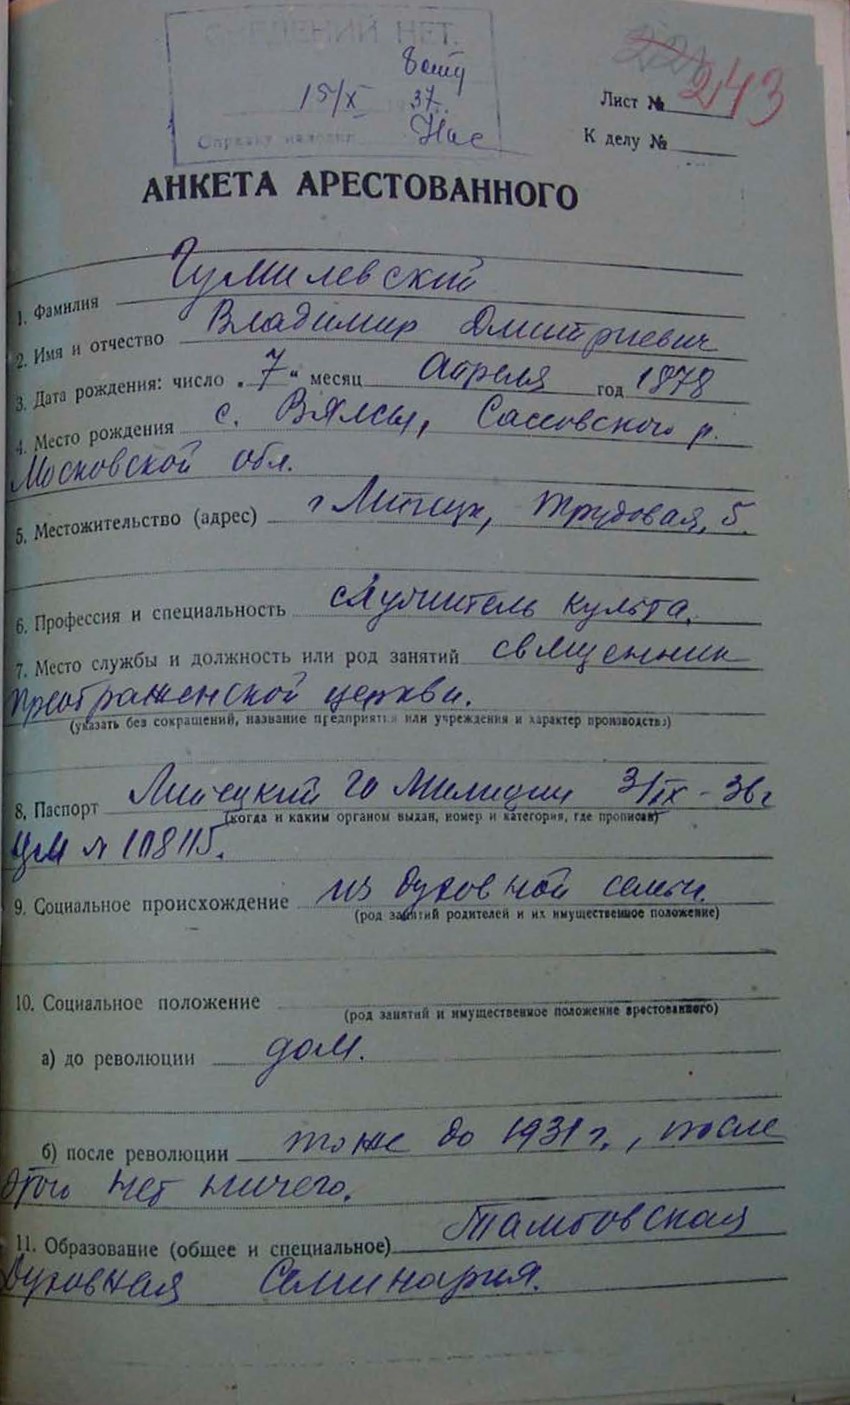 СВЕДЕНИЙ НЕТ.
15/X 37.
Справку наводил
Лист № 243
К делу №
АНКЕТА АРЕСТОВАННОГО
1. Фамилия Гумилевский
2. Имя и отчество Владимир Дмитриевич
3. Дата рождения: число „7“ месяц Апреля год 1878
4. Место рождения с. Вялсы, Сассовского р.
Московской обл.
5. Местожительство (адрес) г Липецк, Трудовая, 5.
6. Профессия и специальность служитель культа.
7. Место службы и должность или род занятий священник
Преображенской церкви.
(указать без сокращений, название предприятия или учреждения и характер производства)
8. Паспорт Липецкий го Милиции 3/IX - 36 г
(когда и каким органом выдан, номер и категория, где прописан)
№ 108115.
9. Социальное происхождение из духовной семьи.
(род занятий родителей и их имущественное положение)
10. Социальное положение
(род занятий и имущественное положение арестованного)
а) до революции дом.
б) после революции тоже до 1931 г., после
этого нет ничего.
11. Образование (общее и специальное) Тамбовская
Духовная Семинария.